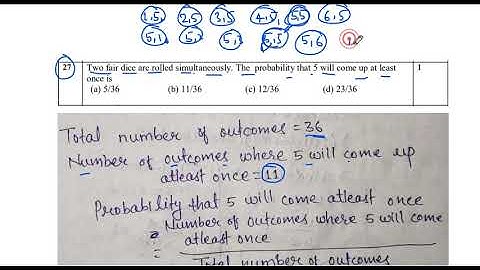 1,5 2,5 3,5 4,5 5,5 6,5
5,1 5, 5, 5,5 5,6
27 Two fair dice are rolled simultaneously. The probability that 5 will come up at least 1
once is
(a) 5/36 (b) 11/36 (c) 12/36 (d) 23/36
Total number of outcomes = 36
Number of outcomes where 5 will come up
atleast once = 11
Probability that 5 will come atleast once
= Number of outcomes where 5 will come
atleast once
=
Total number of outcomes